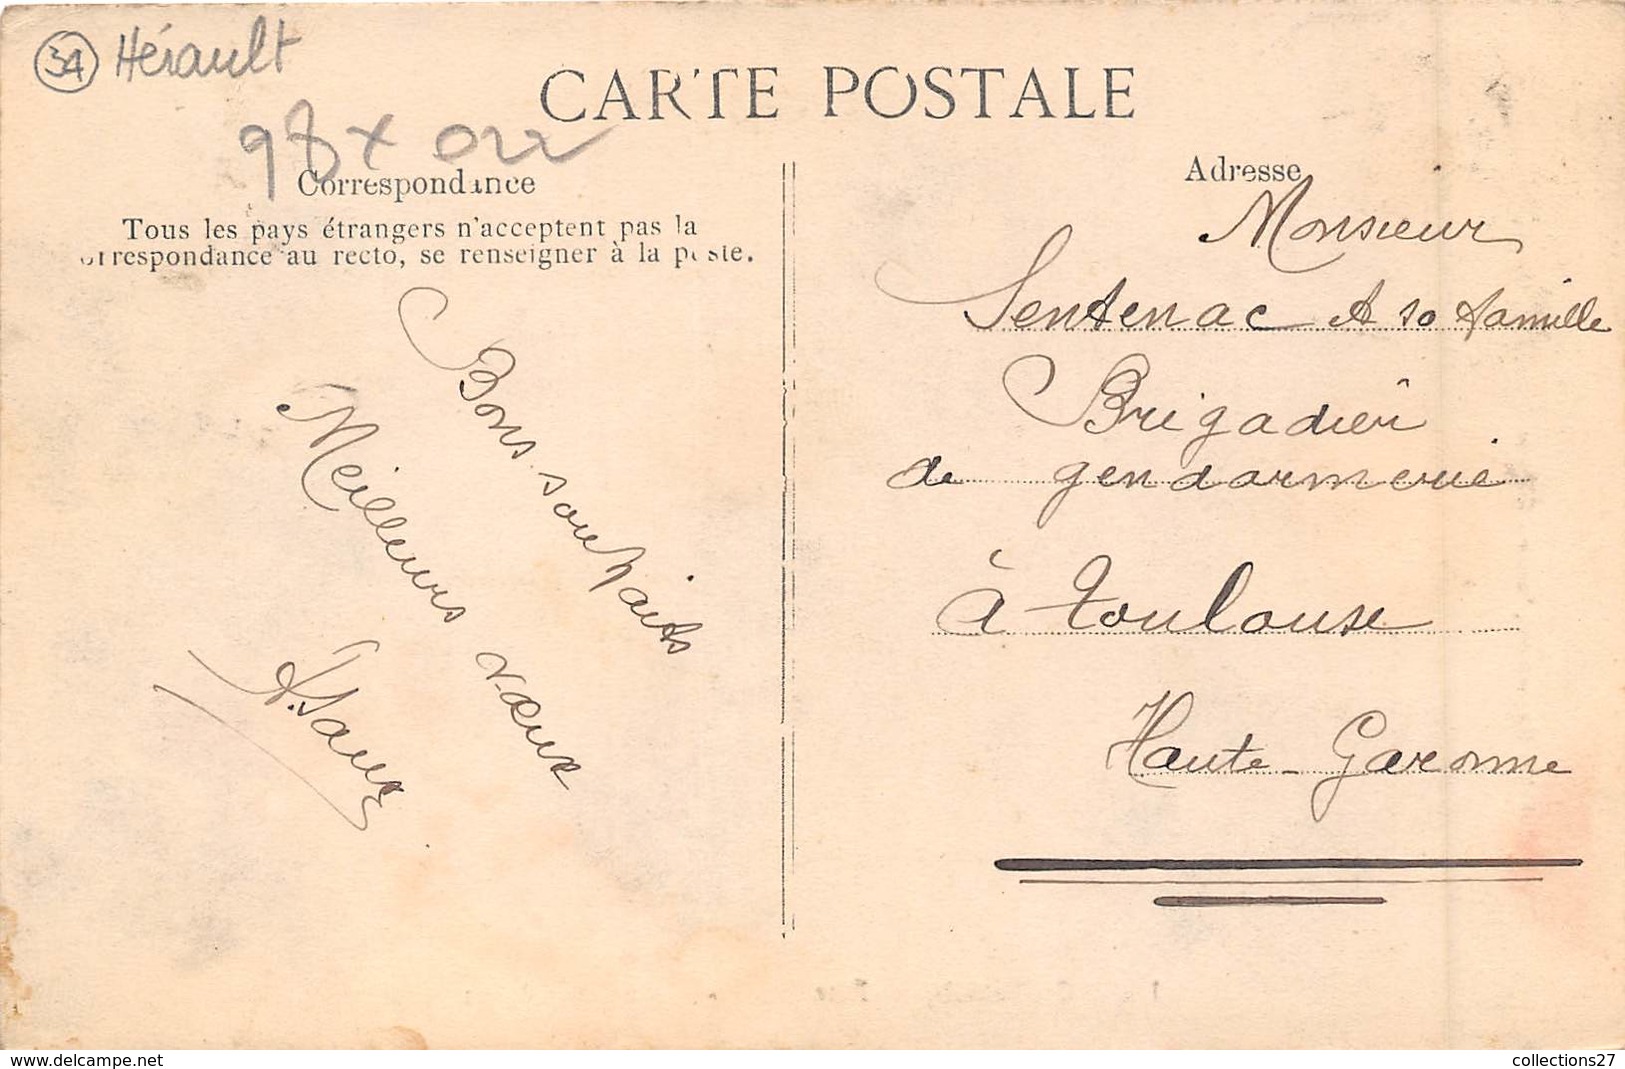 34 Hérault
98 x
CARTE POSTALE
Correspondance
Tous les pays étrangers n'acceptent pas la
correspondance au recto, se renseigner à la poste.
Bons souhaits
Meilleurs vœux
Adresse
Monsieur
Sentenac et sa famille
Brigadier
de gendarmerie
à toulouse
Haute-Garonne
www.delcampe.net
collections27